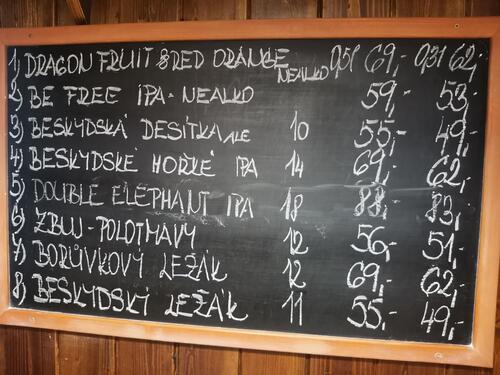 1) DRAGON FRUIT & RED ORANGE NEALKO 0,5l 69,- 0,3l 62,-
2) BE FREE IPA - NEALKO 59,- 53,-
3) BESKYDSKÁ DESÍTKA ALE 10 55,- 49,-
4) BESKYDSKÉ HOŘKÉ IPA 14 69,- 62,-
5) DOUBLE ELEPHANT IPA 18 88,- 83,-
6) ZBUJ - POLOTMAVÝ 12 56,- 51,-
7) BORŮVKOVÝ LEŽÁK 12 69,- 62,-
8) BESKYDSKÝ LEŽÁK 11 55,- 49,-